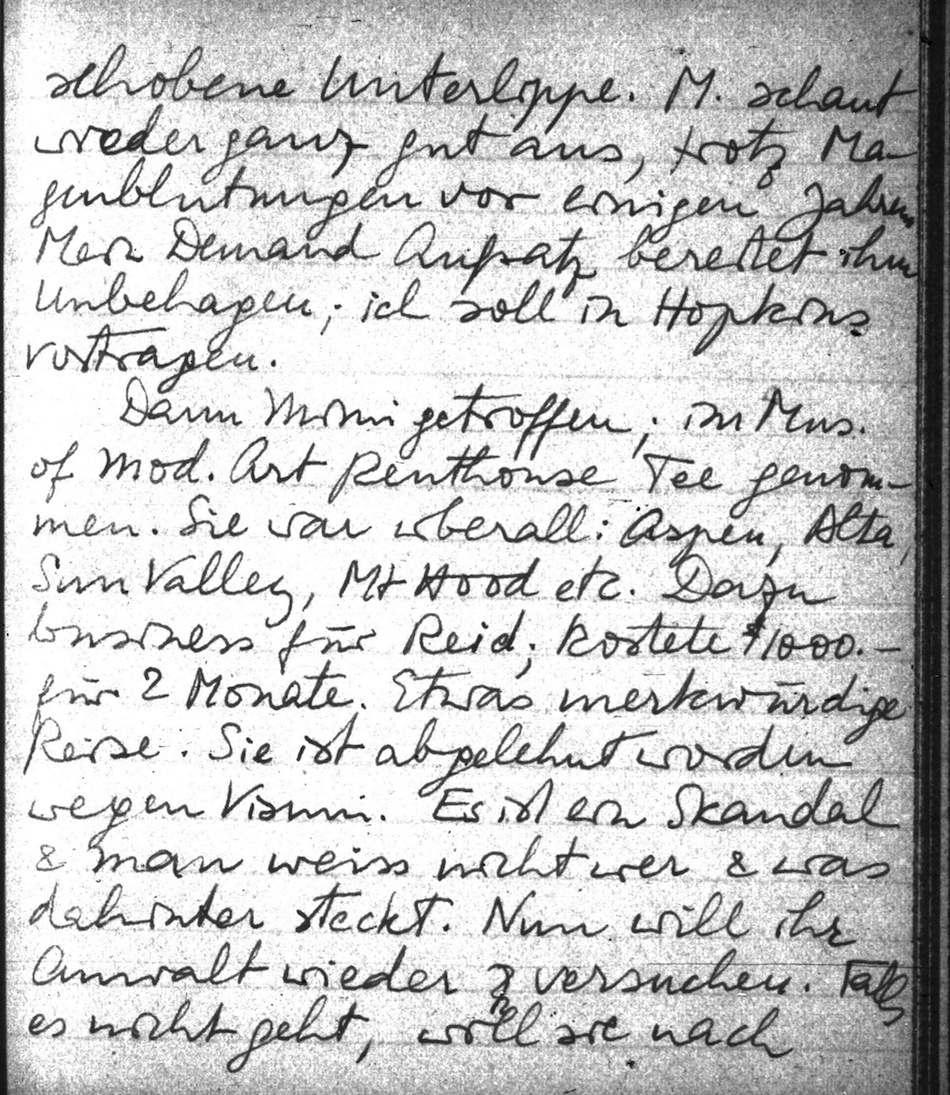 schobene Unterlippe. M. schaut
wieder ganz gut aus, trotz Ma-
genblutungen vor einigen Jahren
Mein Demand Aufsatz bereitet ihm
Unbehagen; ich soll in Hopkins
vortragen.
Dann Mimi getroffen; im Mus.
of Mod. Art Penthouse Tee genom-
men. Sie war überall: Aspen, Alta,
Sun Valley, Mt Hood etc. Dazu
business für Reid; kostete $1000.-
für 2 Monate. Etwas merkwürdige
Reise. Sie ist abgelehnt worden
wegen Visum. Es ist ein Skandal
& man weiss nicht wer & was
dahinter steckt. Nun will ihr
Anwalt wieder versuchen. Falls
es nicht geht, will sie nach